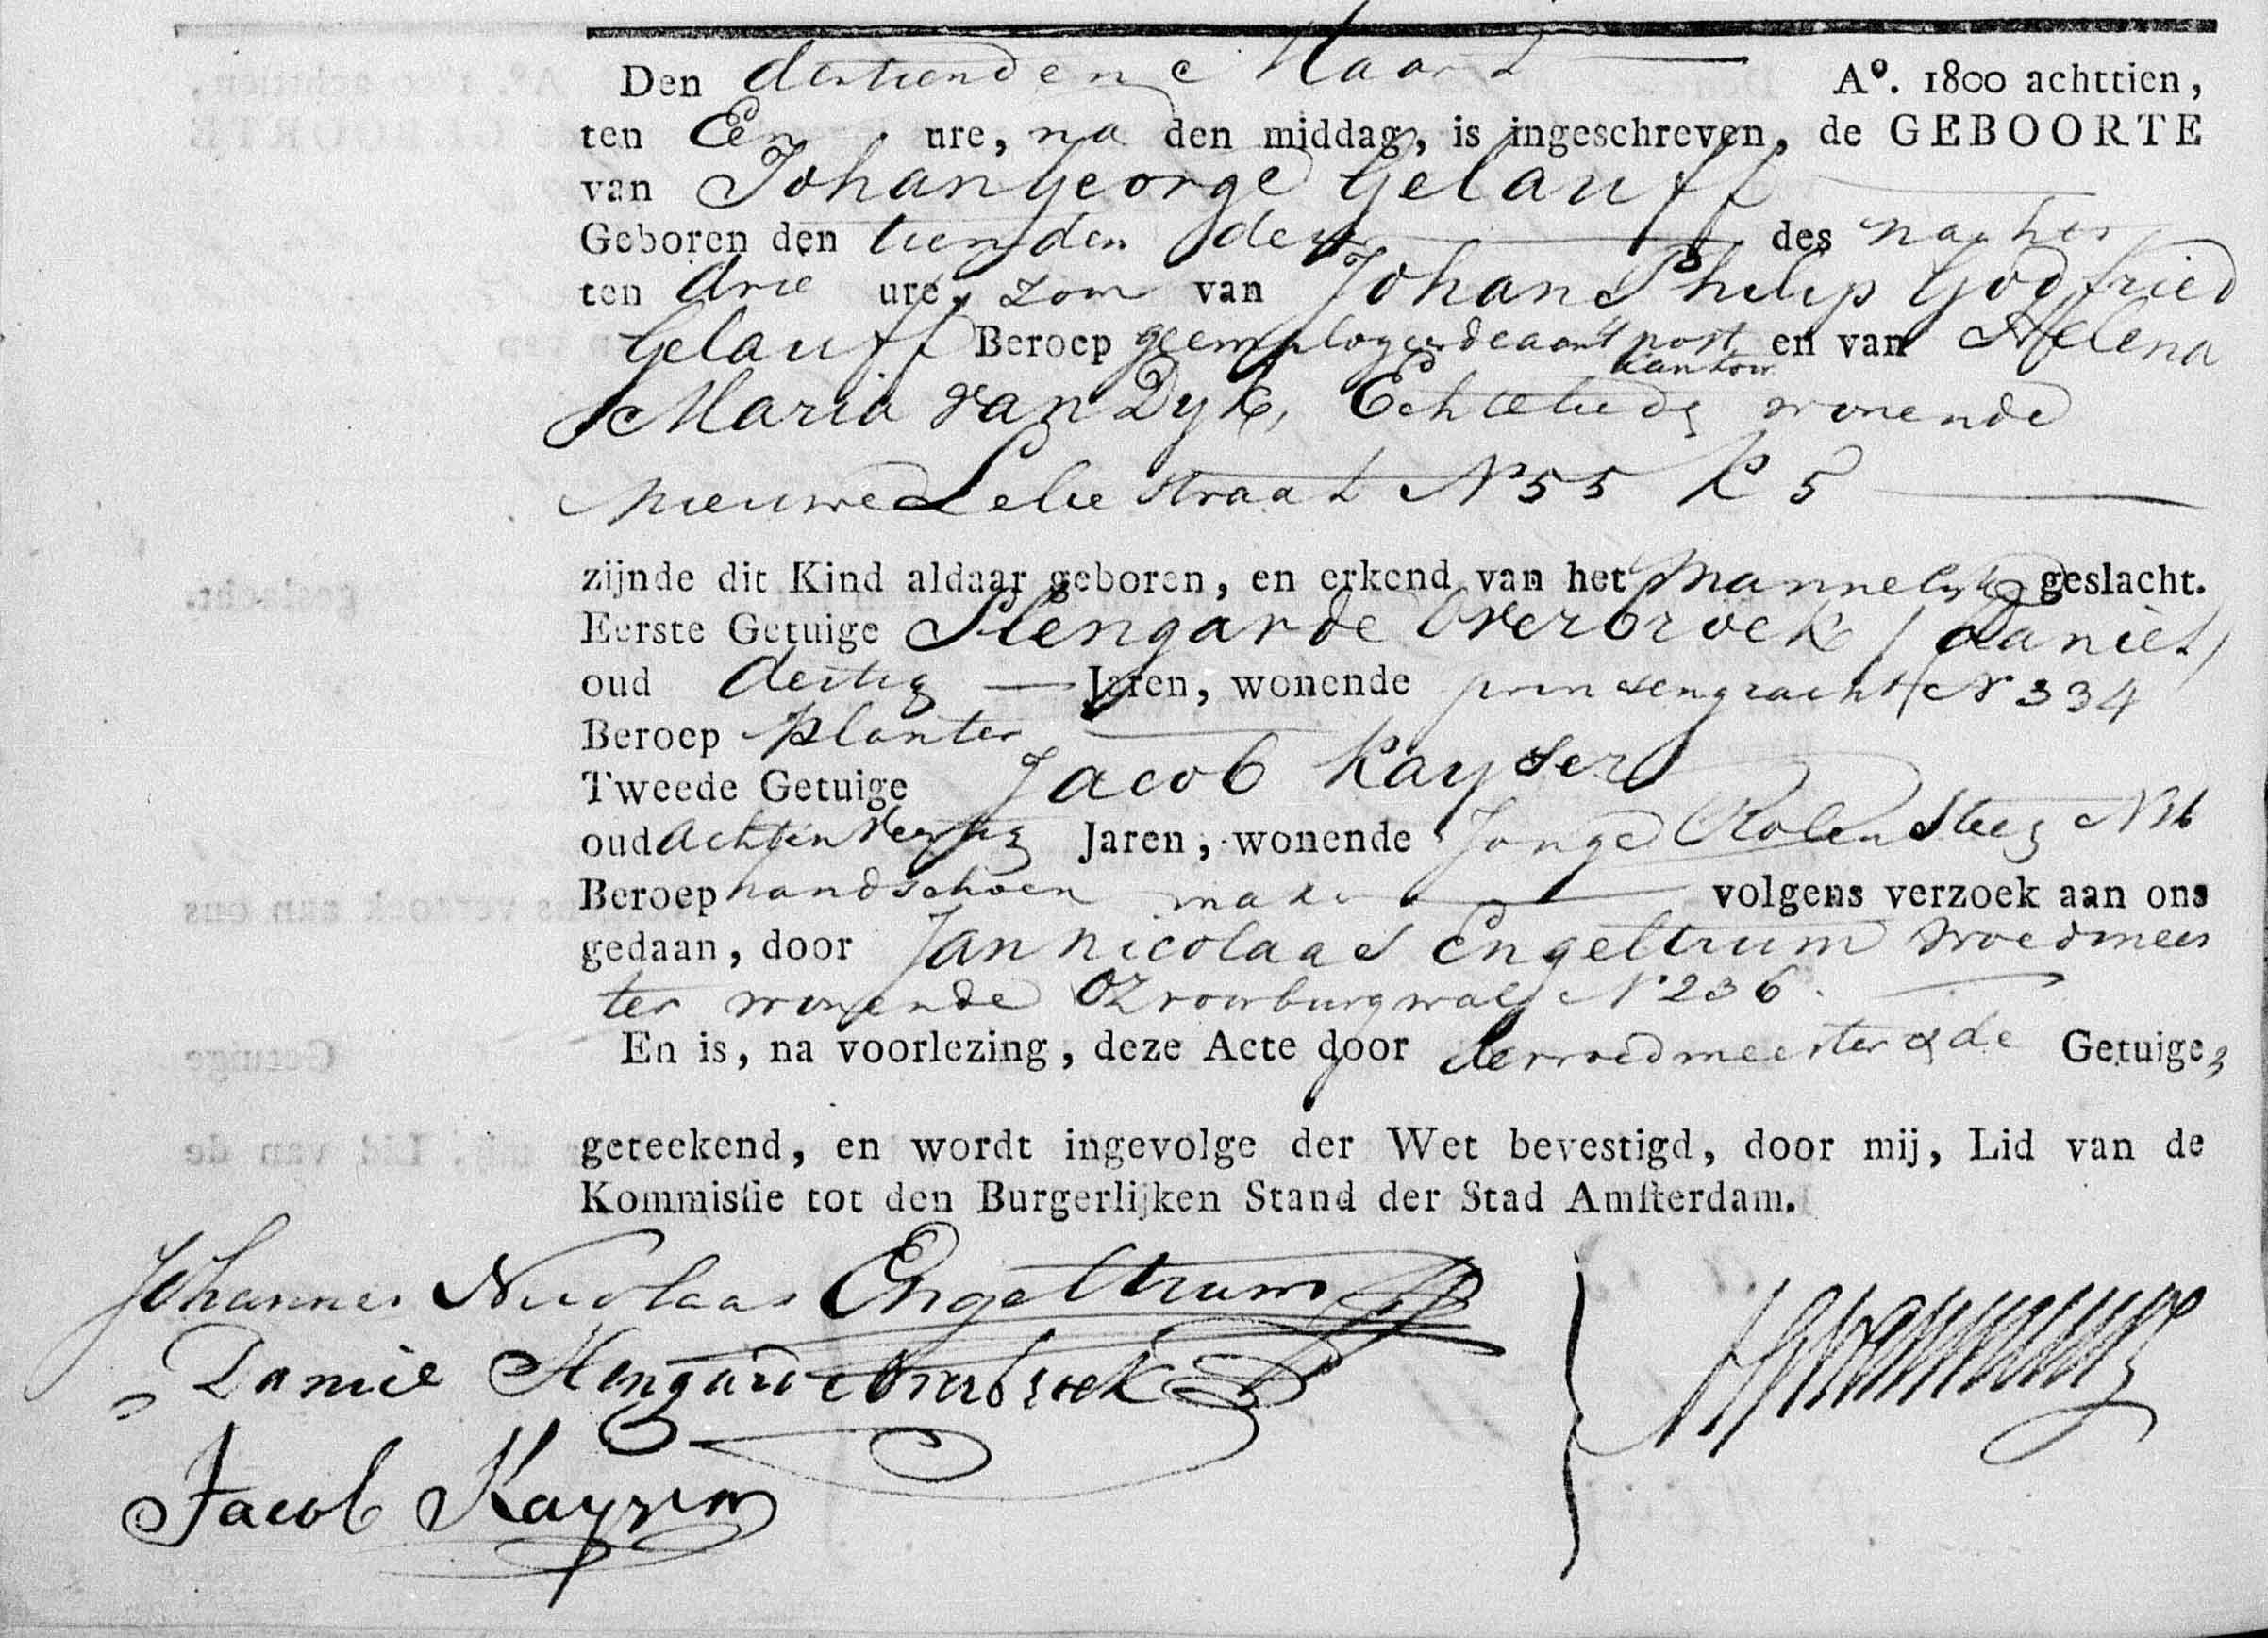 Den dertienden Maart A°. 1800 achttien,
ten Een ure, na den middag, is ingeschreven, de GEBOORTE
van Johan George Gelauff
Geboren den tienden dezer des nachts
ten drie ure, zoon van Johan Philip Godfried
Gelauff Beroep geemployeerde aan 't post kantoor en van Helena
Maria van Dyk, Echtelieden wonende
Nieuwe Lelie straat N° 55 K 5
zijnde dit Kind aldaar geboren, en erkend van het Mannelyk geslacht.
Eerste Getuige Stengarde Overbroek / Daniel /
oud dertig Jaren, wonende prinsengracht N 334
Beroep planter
Tweede Getuige Jacob Kayser
oud Achtenveertig Jaren, wonende Jonge Roelen Steeg N 36
Beroep handschoen maker volgens verzoek aan ons
gedaan, door Jan Nicolaas Engeltrum vroedmees
ter wonende OZ voorburgwal N° 236.
En is, na voorlezing, deze Acte door de vroedmeester & de Getuige,
geteekend, en wordt ingevolge der Wet bevestigd, door mij, Lid van de
Kommissie tot den Burgerlijken Stand der Stad Amsterdam.
Johannes Nicolaas Engeltrum
Daniel Stengarde Overbroek
Jacob Kayser